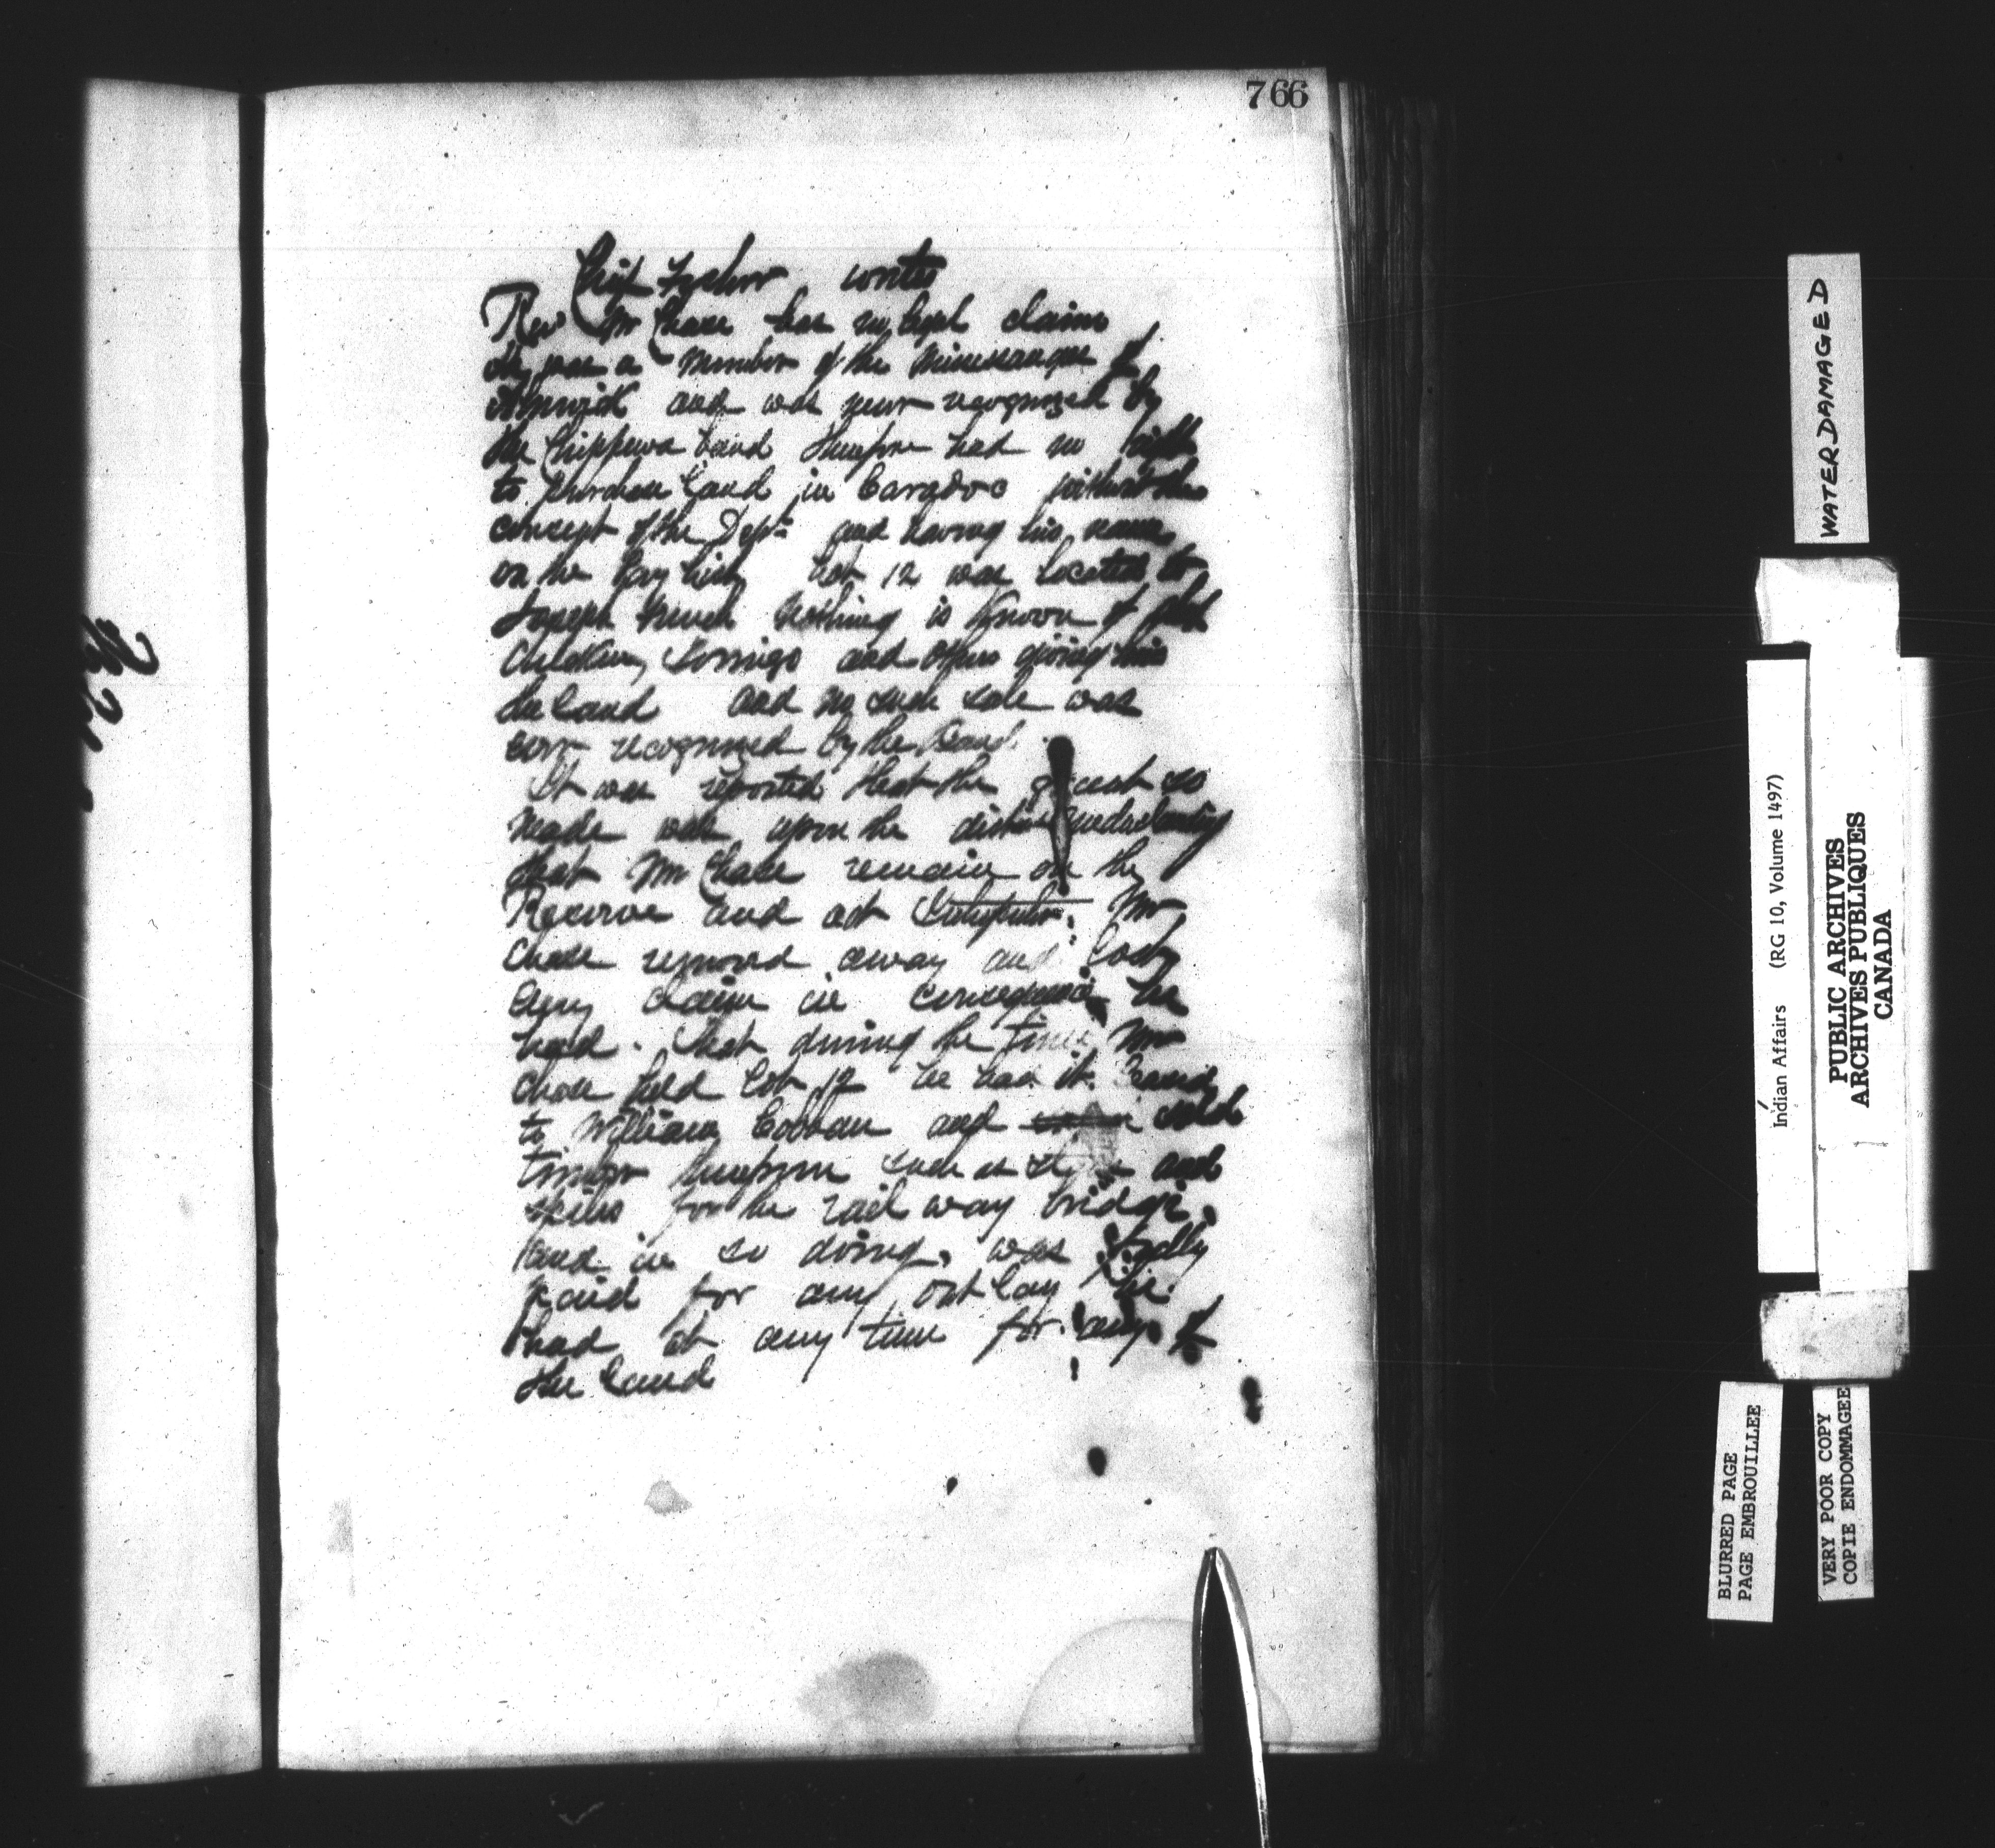 766
Chief Fisher writes
Rev Mr Chase has no legal claim
He was a member of the Missessaugas of
Alnwick and was never recognized by
the Chippewa band therefore had no right
to purchase land in Caradoc without the
concept of the Dept and having his name
on the Pay list Lot 12 was located to
Joseph Nothing is known of
Children, and others giving him
the land and no such sale was
ever recognized by the Band.
It was reported that the grant so
made was upon the distinct understanding
that Mr Chase remain on the
Reserve and act Interpreter. Mr
Chase removed away and lost
any claim in consequence he
had. That during the time Mr
Chase held Lot 12 he had it leased
to William and sold
timber therefrom such as and
spiles for the rail way bridge,
and in so doing, was fully
paid for any out lay he
had at any time for any of
the land
WATER DAMAGED
Indian Affairs (RG 10, Volume 1497)
PUBLIC ARCHIVES
ARCHIVES PUBLIQUES
CANADA
BLURRED PAGE
PAGE EMBROUILLEE
VERY POOR COPY
COPIE ENDOMMAGEE